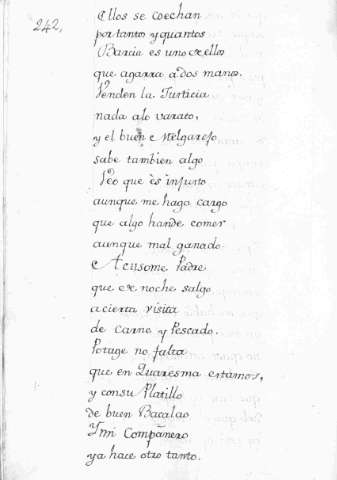 242,
Ellos se coechan
por tantos y quantos
Barcia es uno de ellos
que agarra a dos manos.
Venden la Justicia
nada alo varato,
y el buen e Melgarejo
sabe tambien algo
Veo que es injusto
aunque me hago cargo
que algo hande comer
aunque mal ganado
Acusome Padre
que de noche salgo
a cierta visita
de Carne y Pescado.
Potage no falta
que en Quaresma estamos,
y consu Platillo
de buen Bacalao
Y mi Compañero
ya hace otro tanto.